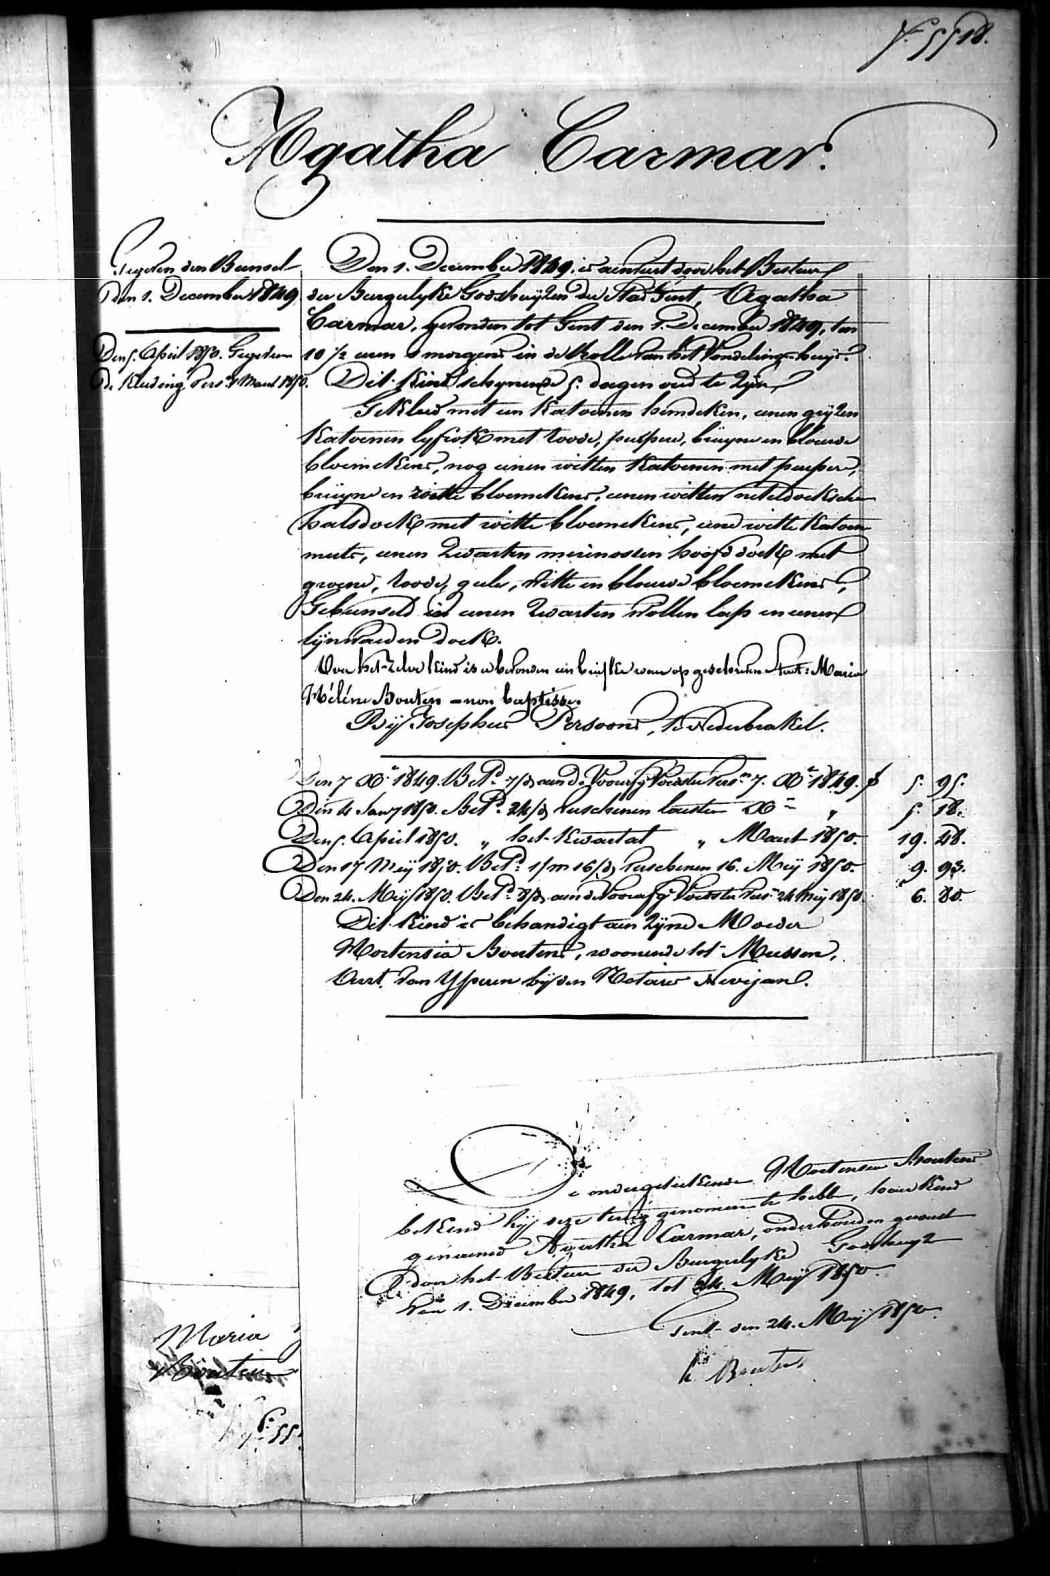 Agatha Carmar.
Gegeven den Bunsel
den 1. December 1849
Den 5. April 1850. Gegeven
de Kleding Pers. Maart 1850.
Den 1. December 1849. is aenveert door het Bestuur
der Burgerlyke Godshuyzen der Stad Gent, Agatha
Carmar, gevonden tot Gent den 1. December 1849, ten
10 ½ uren 's morgens in de Rolle van het Vondelinghuys.
Dit kind schynende 5. dagen oud te zyn
Gekleed met een katoenen hemdeken, eenen gryzen
katoenen lyfrok met roode, purper, bruyne en blauwe
bloemekens, nog eenen witten katoenen met purper,
bruyne en witte bloemekens, eenen witten neteldoekschen
halsdoek met witte bloemekens, eene witte katoene
muts, eenen zwarten merinossen hoofddoek met
groene, roode, gele, witte en blauwe bloemekens,
Gebunseld in eenen zwarten wollen lap en eenen
lynwaeden doek.
Over het zelve kind is er bevonden een briefke waer op geschreven staet: Maria
Hélène Bouten = non baptisée.
By Josephus Persoons, te Nederbrakel.
Den 7 Xbre 1849. Bet. 7/d aen de Voorafg. Voedster Pers. 7. Xbre 1849. f 5. 95.
Den 4 Jany 1850. Bet. 24/d verschenen laesten Xbre " 5. 18.
Den 5. April 1850. " het kwartaal " Maart 1850. 19. 28.
Den 17 Mey 1850. Bet. 1/m 16/d, verschenen 16. Mey 1850. 9. 93.
Den 24. Mey 1850. Bet. 8/d aen de Voorafg. Voedster Pers. 24 Mey 1850 6. 80.
Dit kind is behandigt aen zyne Moeder
Hortensia Boutens, woonende tot Meessen,
Arrt. van Yperen by den Notaris
De ondergeteekende Hortensia Boutens
bekend by deze terug genomen te hebben, haer kind
genaemd Agatha Carmar, onderhouden geweest
door het Bestuer der Burgerlyke Godshuyzen
van 1. December 1849, tot 24. Mey 1850.
Gent den 24. Mey 1850.
h Bouten
Maria
Bouten